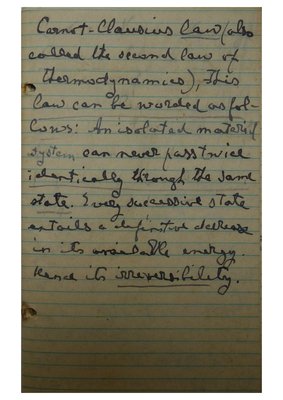 Carnot-Clausius Law (also
called the second law of
thermodynamics), This
law can be worded as fol-
lows: An isolated material
system can never pass twice
identically through the same
state. Every successive state
entails a definitive decrease
in its available energy.
Hence its irreversibility.